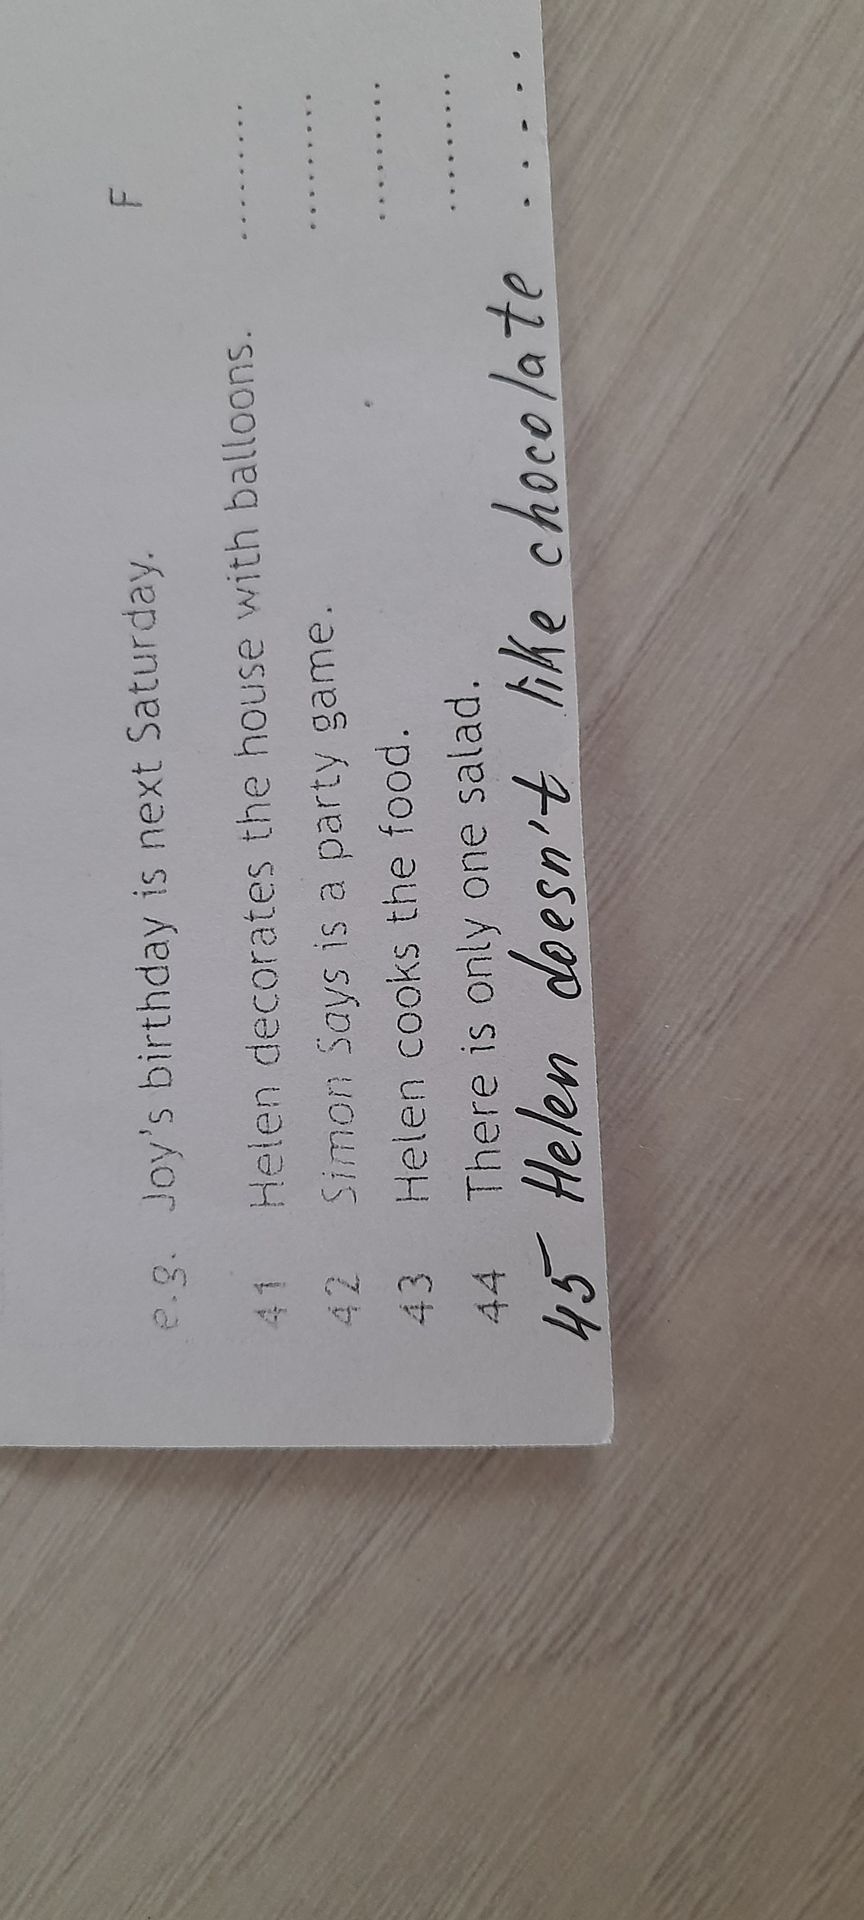 e.g. Joy's birthday is next Saturday. F
41 Helen decorates the house with balloons. ..........
42 Simon Says is a party game. ..........
43 Helen cooks the food. ..........
44 There is only one salad. ..........
45 Helen doesn't like chocolate ......